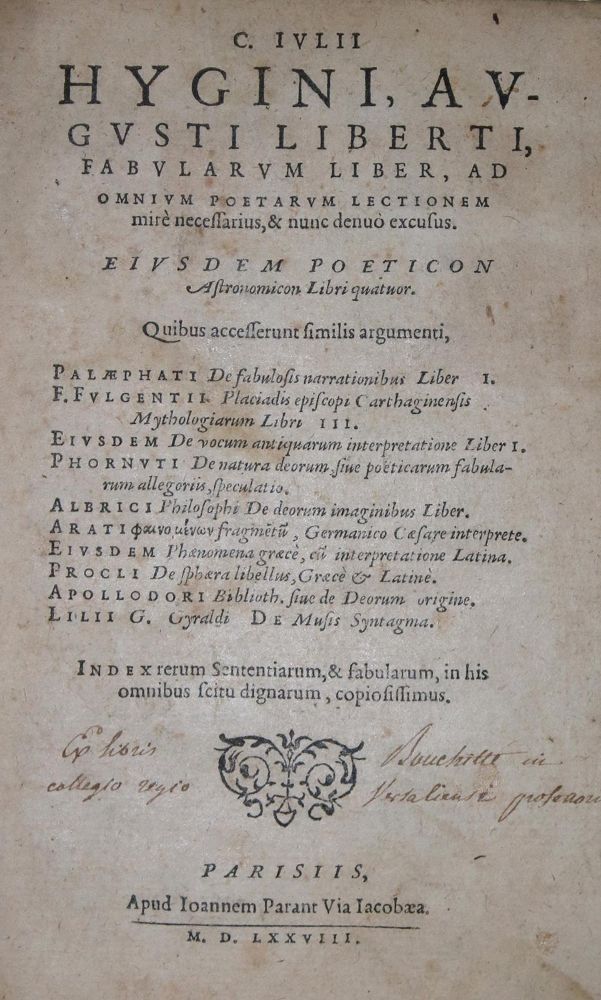 C. IVLII
HYGINI, AV-
GVSTI LIBERTI,
FABVLARVM LIBER, AD
OMNIVM POETARVM LECTIONEM
mirè necessarius, & nunc denuò excusus.
EIVSDEM POETICON
Astronomicon Libri quatuor.
Quibus accesserunt similis argumenti,
PALÆPHATI De fabulosis narrationibus Liber I.
F. FVLGENTII Placiadis episcopi Carthaginensis
Mythologiarum Libri III.
EIVSDEM De vocum antiquarum interpretatione Liber I.
PHORNVTI De natura deorum, siue poëticarum fabula-
rum allegoriis, speculatio.
ALBRICI Philosophi De deorum imaginibus Liber.
ARATI φαινομένων fragmẽtũ, Germanico Cæsare interprete.
EIVSDEM Phænomena græcè, cũ interpretatione Latina.
PROCLI De sphæra libellus, Græcè & Latinè.
APOLLODORI Biblioth. siue de Deorum origine.
LILII G. Gyraldi DE Musis Syntagma.
INDEX rerum Sententiarum, & fabularum, in his
omnibus scitu dignarum, copiosissimus.
Ex libris Bouchitté in
collegio regio Versaliensi professoris
PARISIIS,
Apud Ioannem Parant Via Iacobæa.
M. D. LXXVIII.